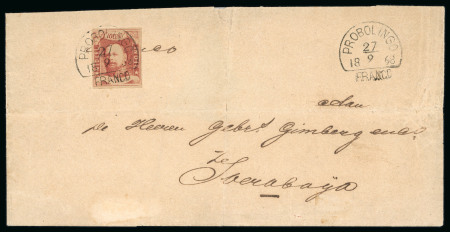 PROBOLINGO
27
9
FRANCO
franco
PROBOLINGO
27
18 9 68
FRANCO
Aan
De Heeren Gebrs Gimberg en Co
te
Soerabaya